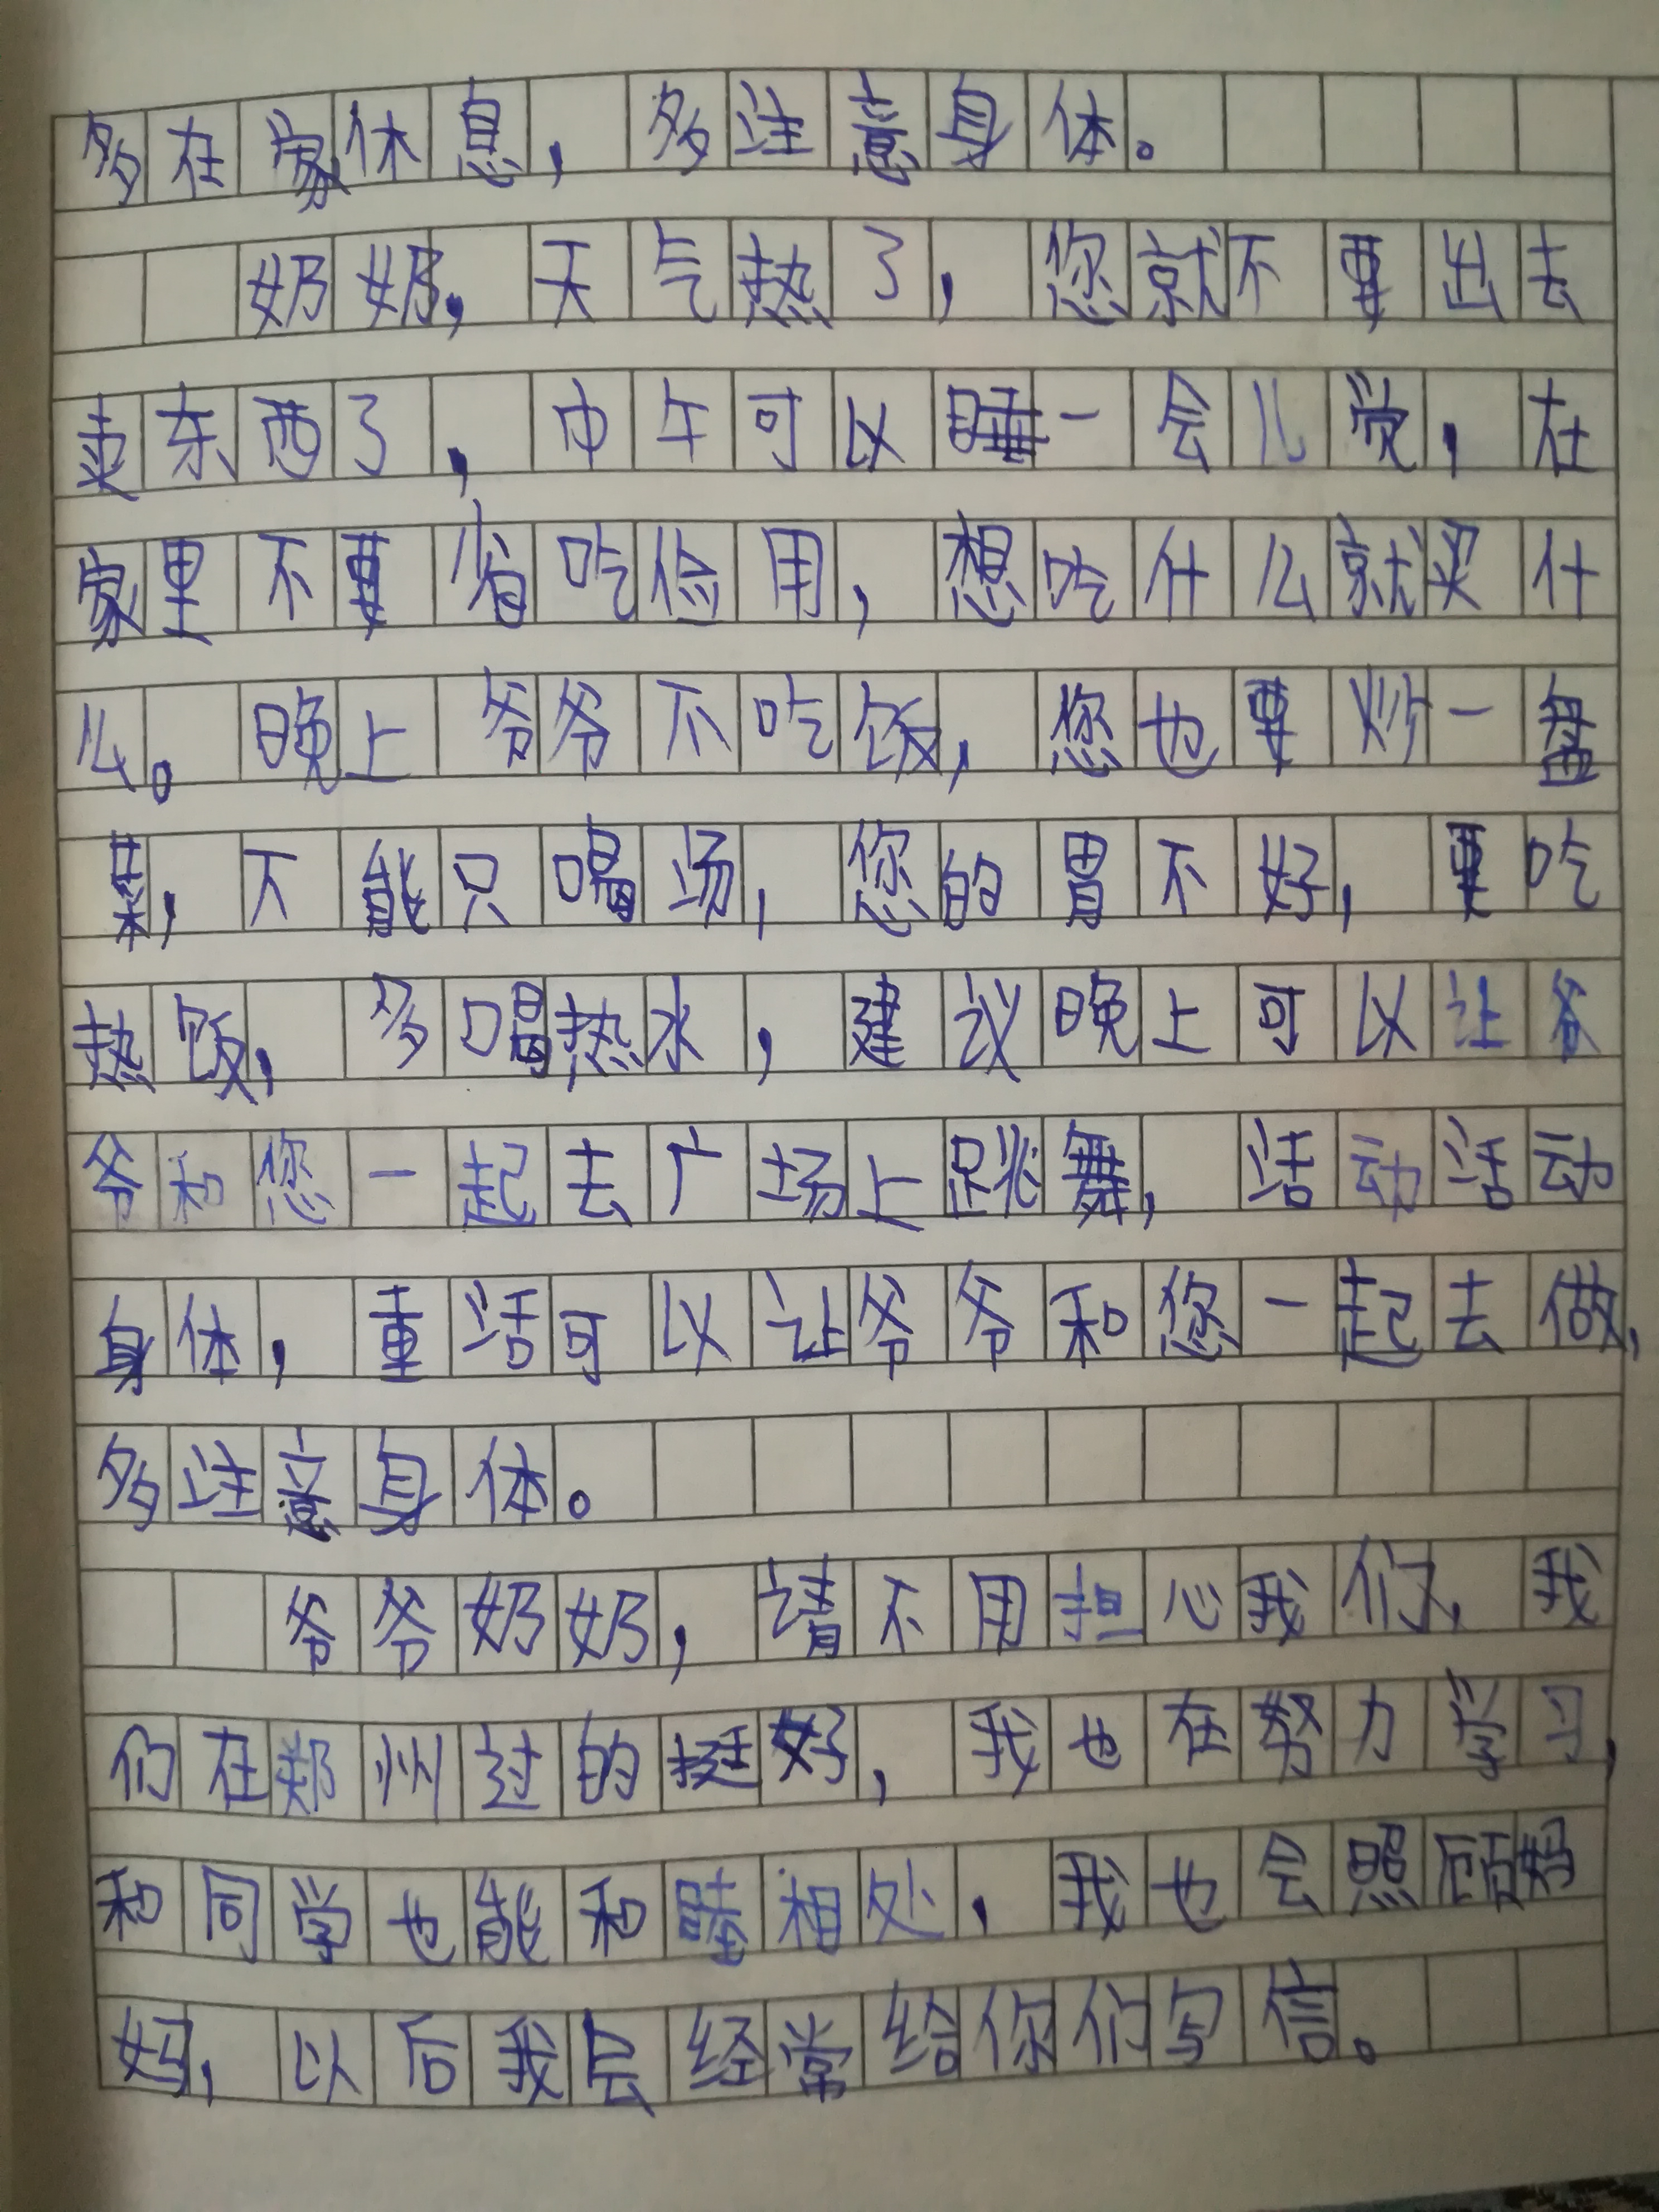 多在家休息，多注意身体。
奶奶，天气热了，您就不要出去
卖东西了，中午可以睡一会儿觉，在
家里不要省吃俭用，想吃什么就买什
么。晚上爷爷不吃饭，您也要炒一盘
菜，不能只喝场，您的胃不好，要吃
热饭，多喝热水，建议晚上可以让爷
爷和您一起去广场上跳舞，活动活动
身体，重活可以让爷爷和您一起去做，
多注意身体。
爷爷奶奶，请不用担心我们，我
们在郑州过的挺好，我也在努力学习，
和同学也能和睦相处，我也会照顾妈
妈，以后我会经常给你们写信。